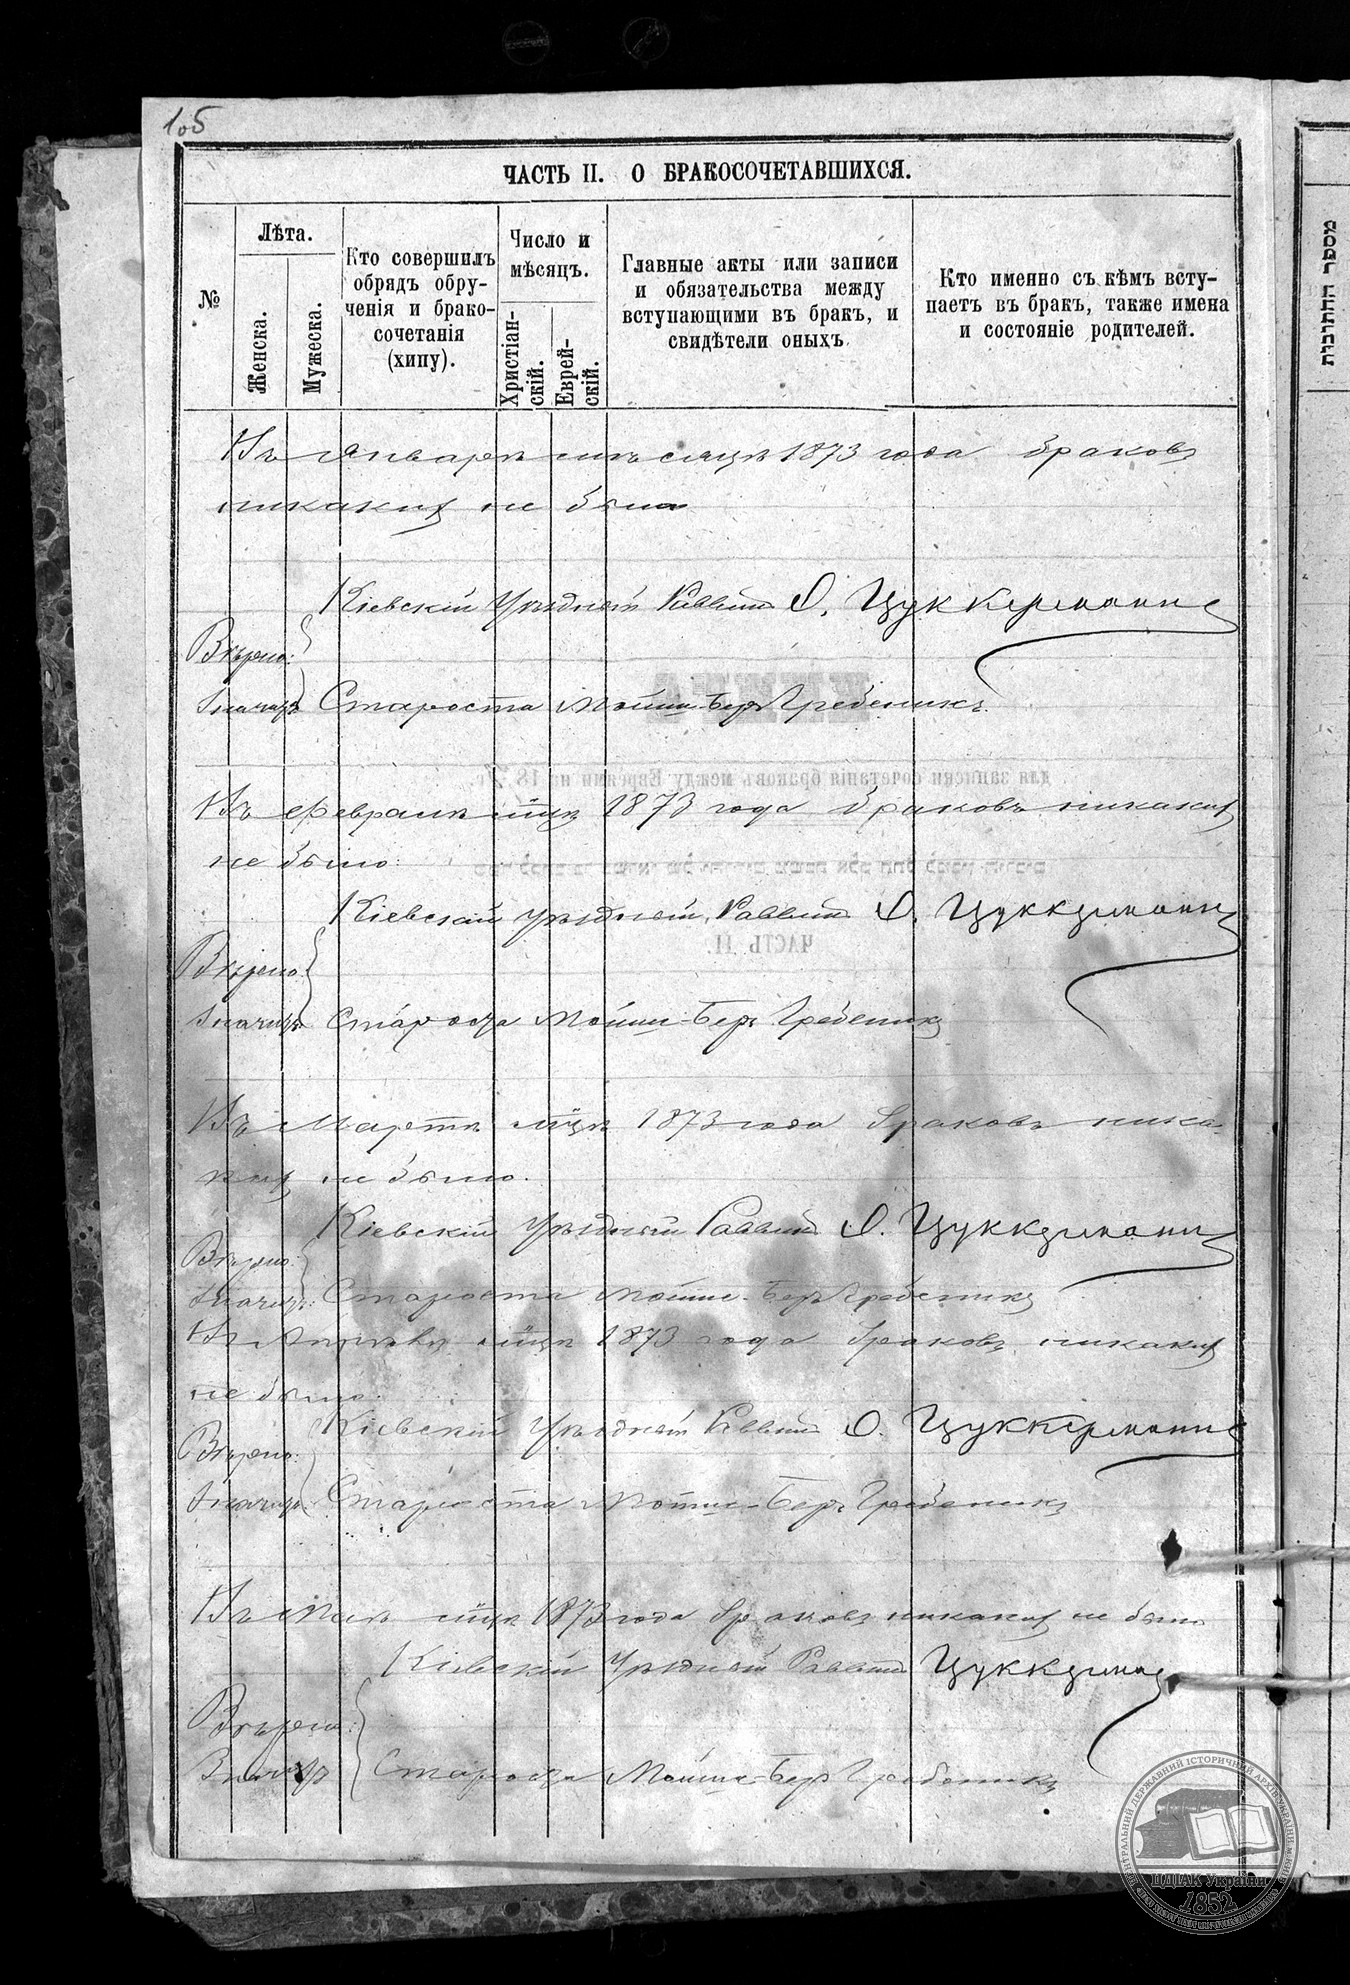 105
ЧАСТЬ II. О БРАКОСОЧЕТАВШИХСЯ.
№
Лѣта.
Женска.
Мужеска.
Кто совершилъ
обрядъ обру-
ченія и брако-
сочетанія
(хипу).
Число и
мѣсяцъ.
Христіан-
скій.
Еврей-
скій.
Главные акты или записи
и обязательства между
вступающими въ бракъ, и
свидѣтели оныхъ.
Кто именно съ кѣмъ всту-
паетъ въ бракъ, также имена
и состояніе родителей.
מספר החתונות
Въ Январѣ мѣсяцѣ 1873 года браковъ
никаких не было
Кіевскій Уѣздный Раввинъ О. Цуккерманъ
Вѣрно:
Староста Мошко-Беръ Гребеникъ
Въ Февралѣ мцѣ 1873 года браковъ никаких
не было.
Кіевскій Уѣздный Раввинъ О. Цуккерманъ
Вѣрно
Староста Мошко-Беръ Гребеникъ
Въ Мартѣ мцѣ 1873 года браковъ ника-
ких не было.
Кіевскій Уѣздный Раввинъ О. Цуккерманъ
Вѣрно:
Староста Мошко-Беръ Гребеникъ
мцѣ 1873 года браковъ никаких
не было.
Кіевскій Уѣздный Раввинъ О. Цуккерманъ
Вѣрно:
Староста Мошко-Беръ Гребеникъ
Въ Маѣ мцѣ 1873 года браковъ никаких не было
Кіевскій Уѣздный Раввинъ Цуккерманъ
Вѣрно:
Староста Мошко-Беръ Гребеникъ
ЦЕНТРАЛЬНИЙ ДЕРЖАВНИЙ ІСТОРИЧНИЙ АРХІВ УКРАЇНИ, М. КИЇВ
ЦДІАК України
1852